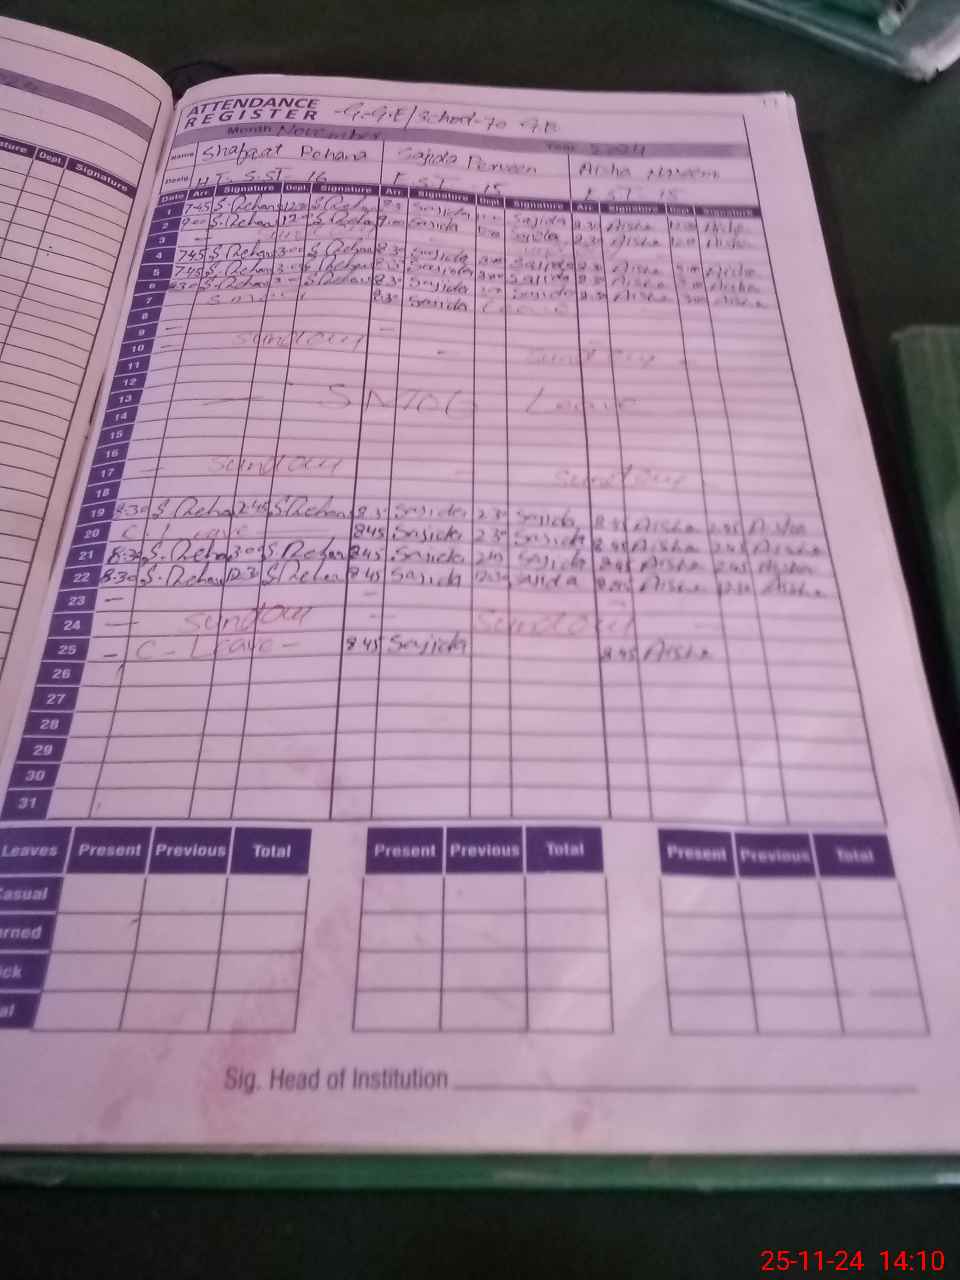 ATTENDANCE
REGISTER G.G.E/School 70 G.B
Month November Year 2024
Name Shafaat Rehana Sajida Perveen Aisha
Desig. H.T. S.ST. 16 E.S.T 15 E.S.T 15
ature Dept. Signature
Date Arr. Signature Dept. Signature Arr. Signature Dept. Signature Arr. Signature Dept. Signature
1 7:45 S.Rehana S.Rehana Sajida Sajida Aisha Aisha
2 S.Rehana S.Rehana Sajida Sajida Aisha Aisha
3 —
4 7:45 S.Rehana 3:00 S.Rehana 8:30 Sajida Sajida Aisha Aisha
5 7:45 S.Rehana S.Rehana Sajida Sajida Aisha Aisha
6 8:30 S.Rehana S.Rehana 8:30 Sajida Sajida Aisha Aisha
7 8:30 Sajida Leave
8
9 —
10 — Sunday - Sunday -
11
12
13 — SMOG Leave
14
15
16
17 — Sunday - Sunday
18
19 8:30 S.Rehana 2:45 S.Rehana 8:30 Sajida 2:30 Sajida 8:45 Aisha 2:45 Aisha
20 C. Leave 8:45 Sajida 2:30 Sajida 8:45 Aisha 2:45 Aisha
21 8:30 S.Rehana 3:00 S.Rehana 8:45 Sajida 2:45 Sajida 8:45 Aisha 2:45 Aisha
22 8:30 S.Rehan 12:30 S.Rehan 8:45 Sajida 12:30 Sajida 8:45 Aisha 12:30 Aisha
23 — -
24 — Sunday - Sunday -
25 - C - Leave - 8:45 Sajida 8:45 Aisha
26
27
28
29
30
31
Leaves Present Previous Total Present Previous Total Present Previous Total
Casual
rned
ick
al
Sig. Head of Institution
25-11-24 14:10